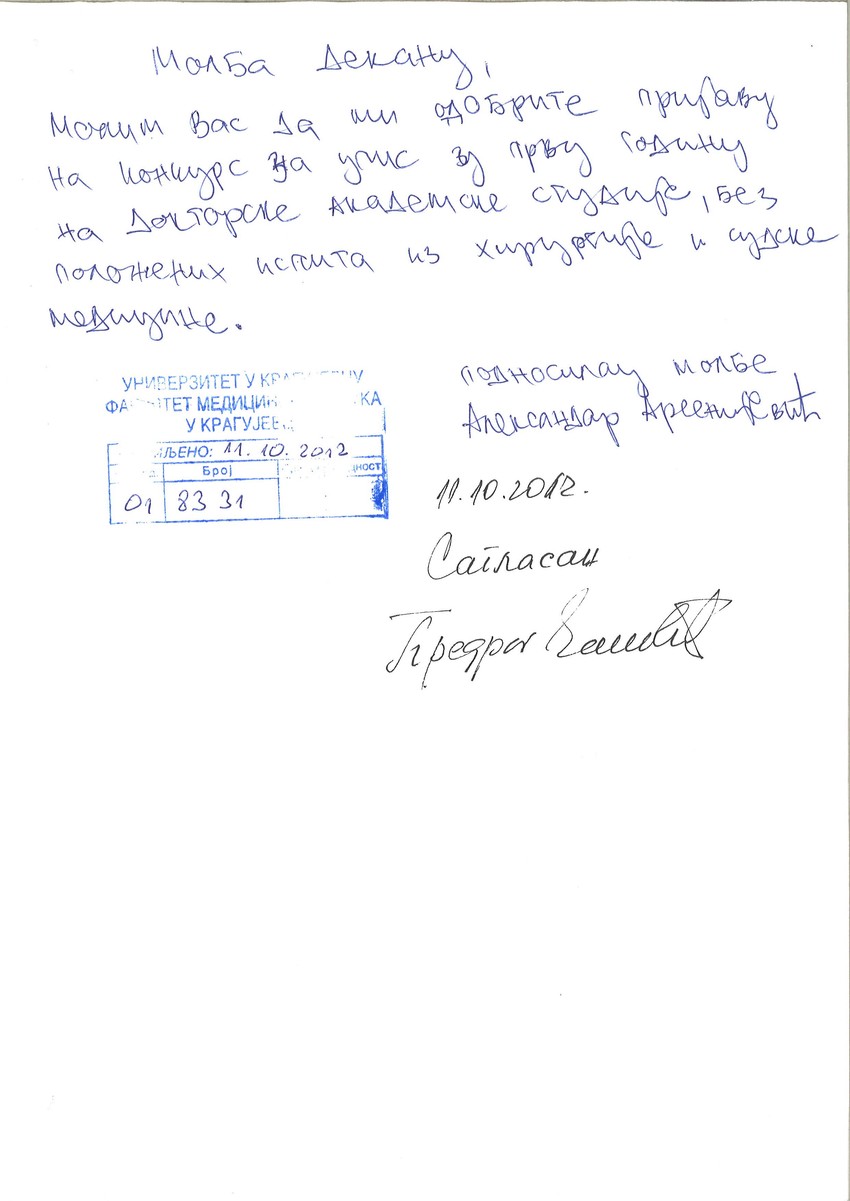 Молба Декану,
Молим Вас да ми одобрите пријаву
на конкурс за упис у прву годину
на Докторске академске студије, без
положених испита из хирургије и судске
медицине.
подносилац молбе
Александар Арсенијевић
УНИВЕРЗИТЕТ У
МЕДИЦИН
У КРАГУЈЕВ
ЉЕНО: 11.10.2012
Број
01 8331
11.10.2012.
Сагласан
Предраг